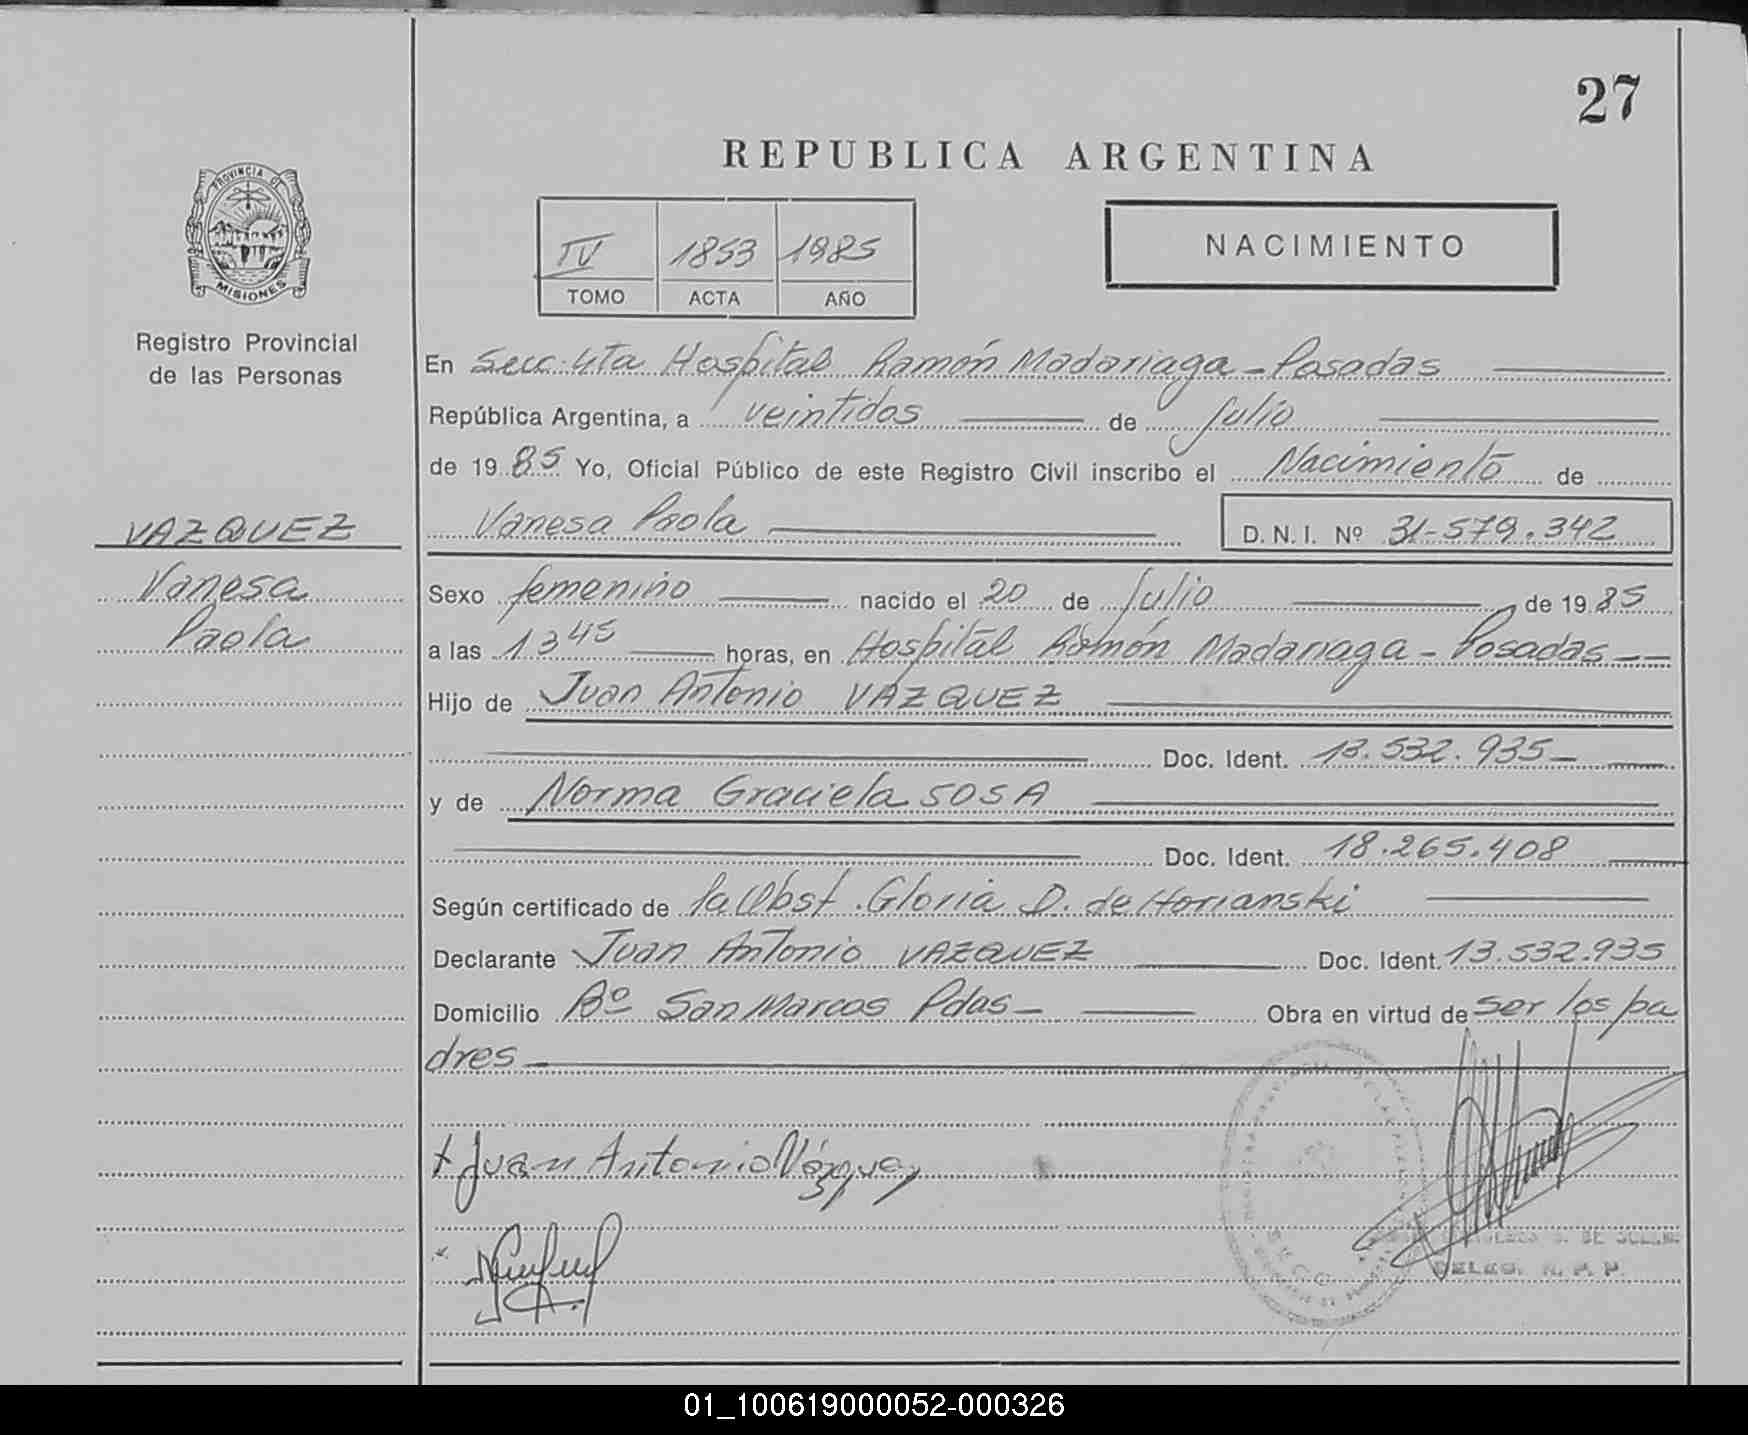 27
REPUBLICA ARGENTINA
PROVINCIA DE
MISIONES
Registro Provincial
de las Personas
IV 1853 1985
TOMO ACTA AÑO
NACIMIENTO
En Secc. 4ta Hospital Ramón Madariaga - Posadas
República Argentina, a veintidos de Julio
de 1985 Yo, Oficial Público de este Registro Civil inscribo el Nacimiento de
Vanesa Paola D.N.I. Nº 31-579.342
VAZQUEZ
Vanesa
Paola
Sexo femenino nacido el 20 de Julio de 1985
a las 13 45 horas, en Hospital Ramón Madariaga - Posadas
Hijo de Juan Antonio VAZQUEZ
Doc. Ident. 13.532.935
y de Norma Graciela SOSA
Doc. Ident. 18.265.408
Según certificado de la Obst. Gloria D. de Horianski
Declarante Juan Antonio VAZQUEZ Doc. Ident. 13.532.935
Domicilio Bº San Marcos Pdas - Obra en virtud de ser los pa
dres
Juan Antonio Vázquez
DE
DELEG. R. P. P.
01_100619000052-000326